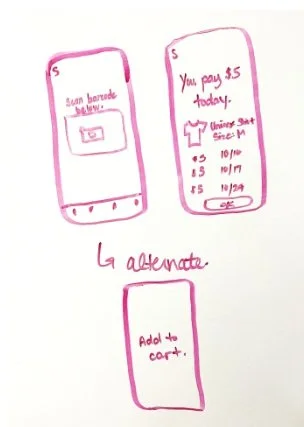 S
Scan barcode
below.
S
You pay $5
today.
Unisex Shirt
Size: M
$5 10/10
$5 10/17
$5 10/24
OK
↳ alternate.
Add to
cart.